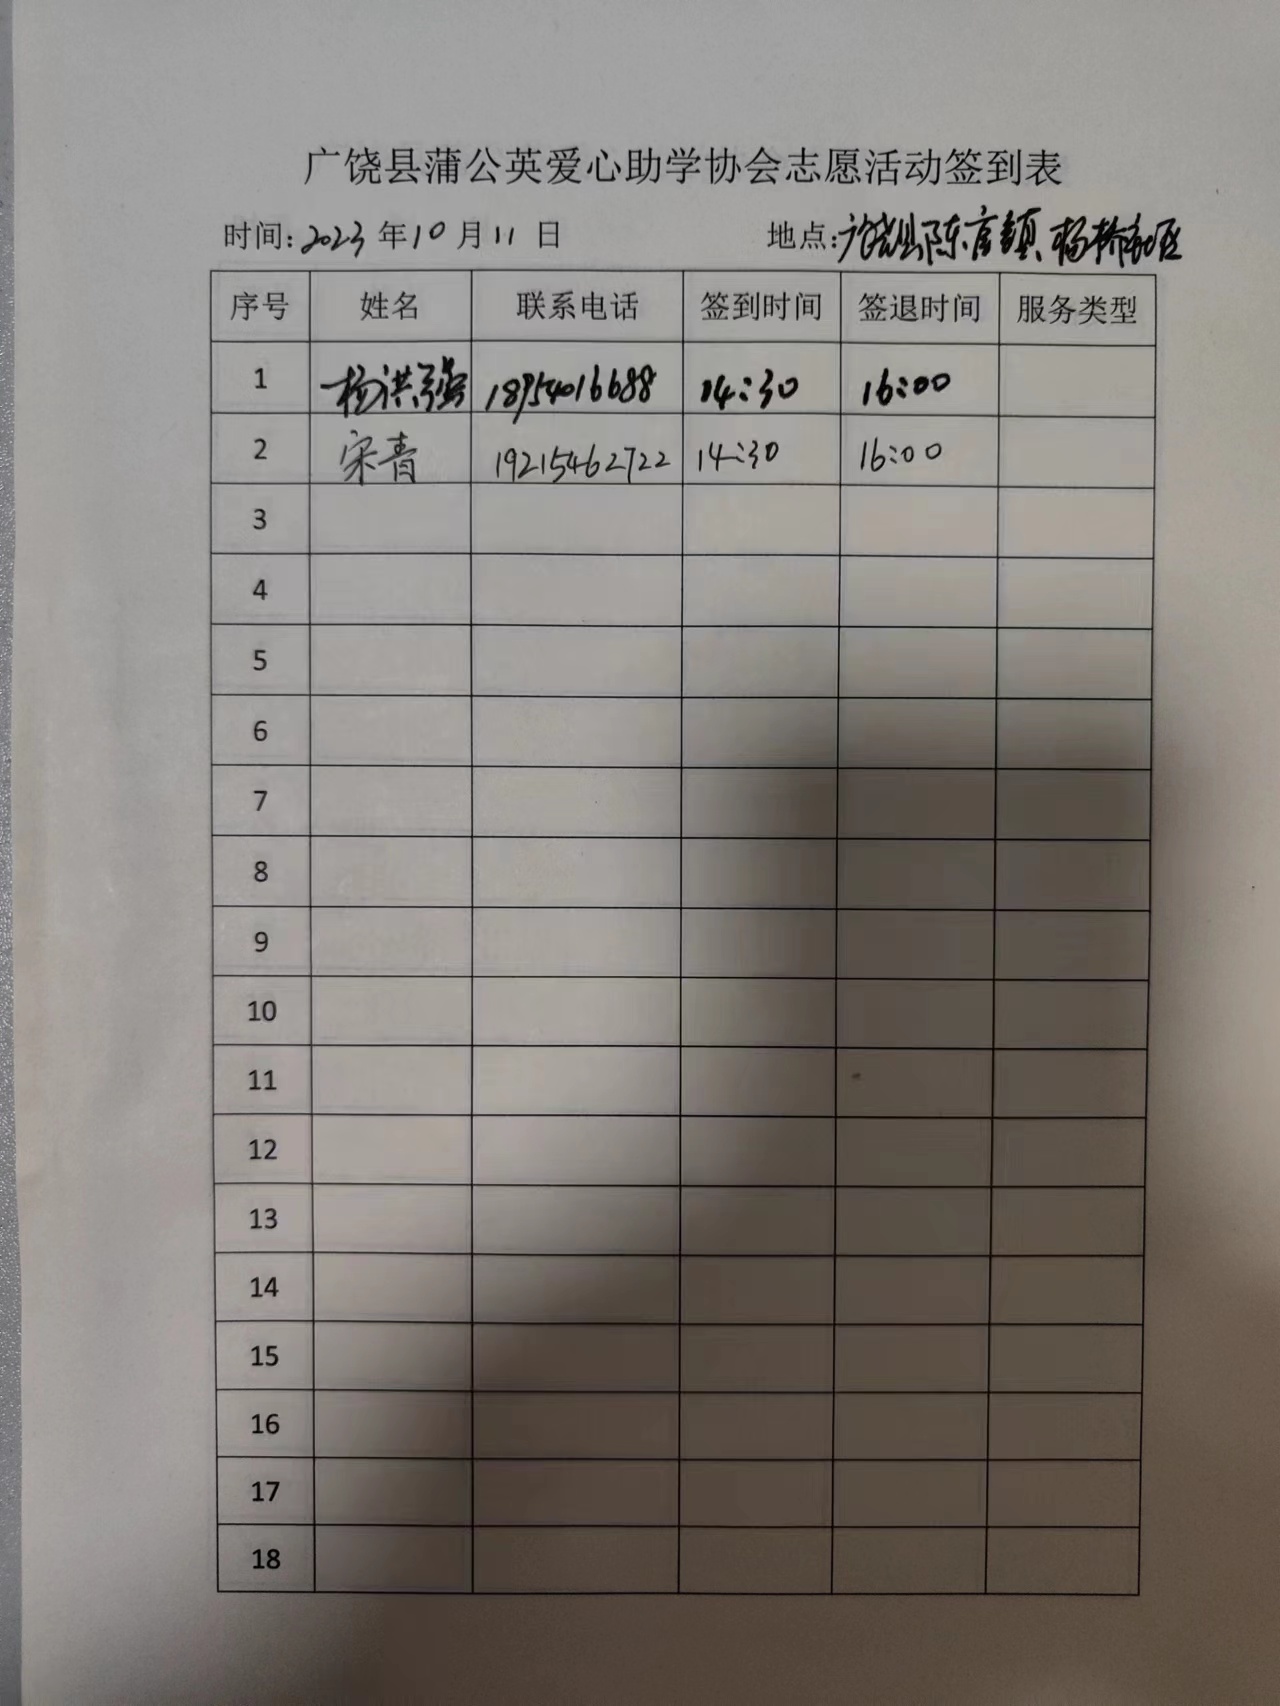 广饶县蒲公英爱心助学协会志愿活动签到表
时间:2023年10月11日 地点:广饶县陈官镇杨桥社区
序号 姓名 联系电话 签到时间 签退时间 服务类型
1 杨洪强 18954016688 14:30 16:00
2 宋青 19215462722 14:30 16:00
3
4
5
6
7
8
9
10
11
12
13
14
15
16
17
18